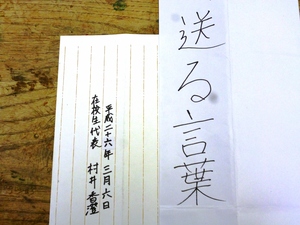 送る言葉
平成二十六年 三月六日
在校生代表 村井 香澄